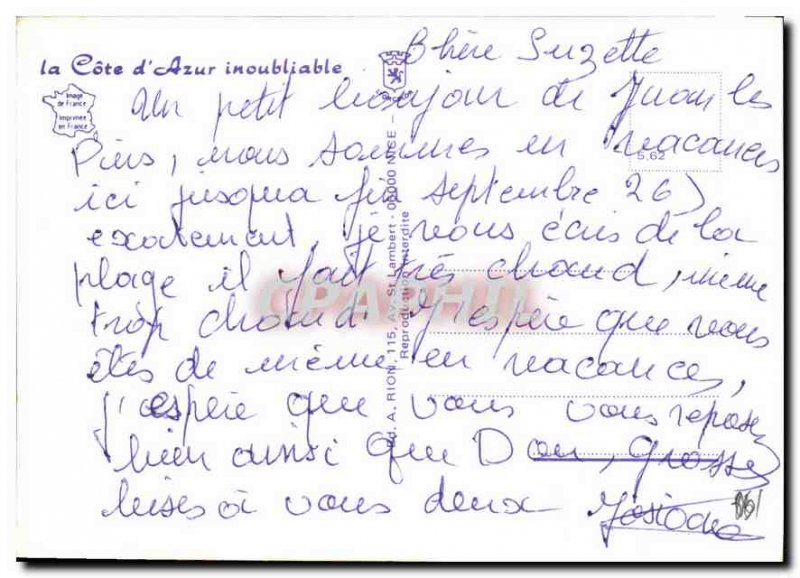 Chère Suzette
la Côte d'Azur inoubliable
Image
de France
Imprimée
en France
5.62
Un petit bonjour de Juan les
Pins, nous sommes en vacances
ici jusqua fin septembre 26)
exactement, je vous écris de la
plage il fait très chaud, même
trop chaud. J'espère que vous
êtes de même en vacances,
j'espère que vous vous reposez
bien ainsi que Dan, grosses
bises à vous deux Josiane
Ed. A. RION, 115, Av. St Lambert - 06000 NICE -
Reproduction interdite
CPAPHIL